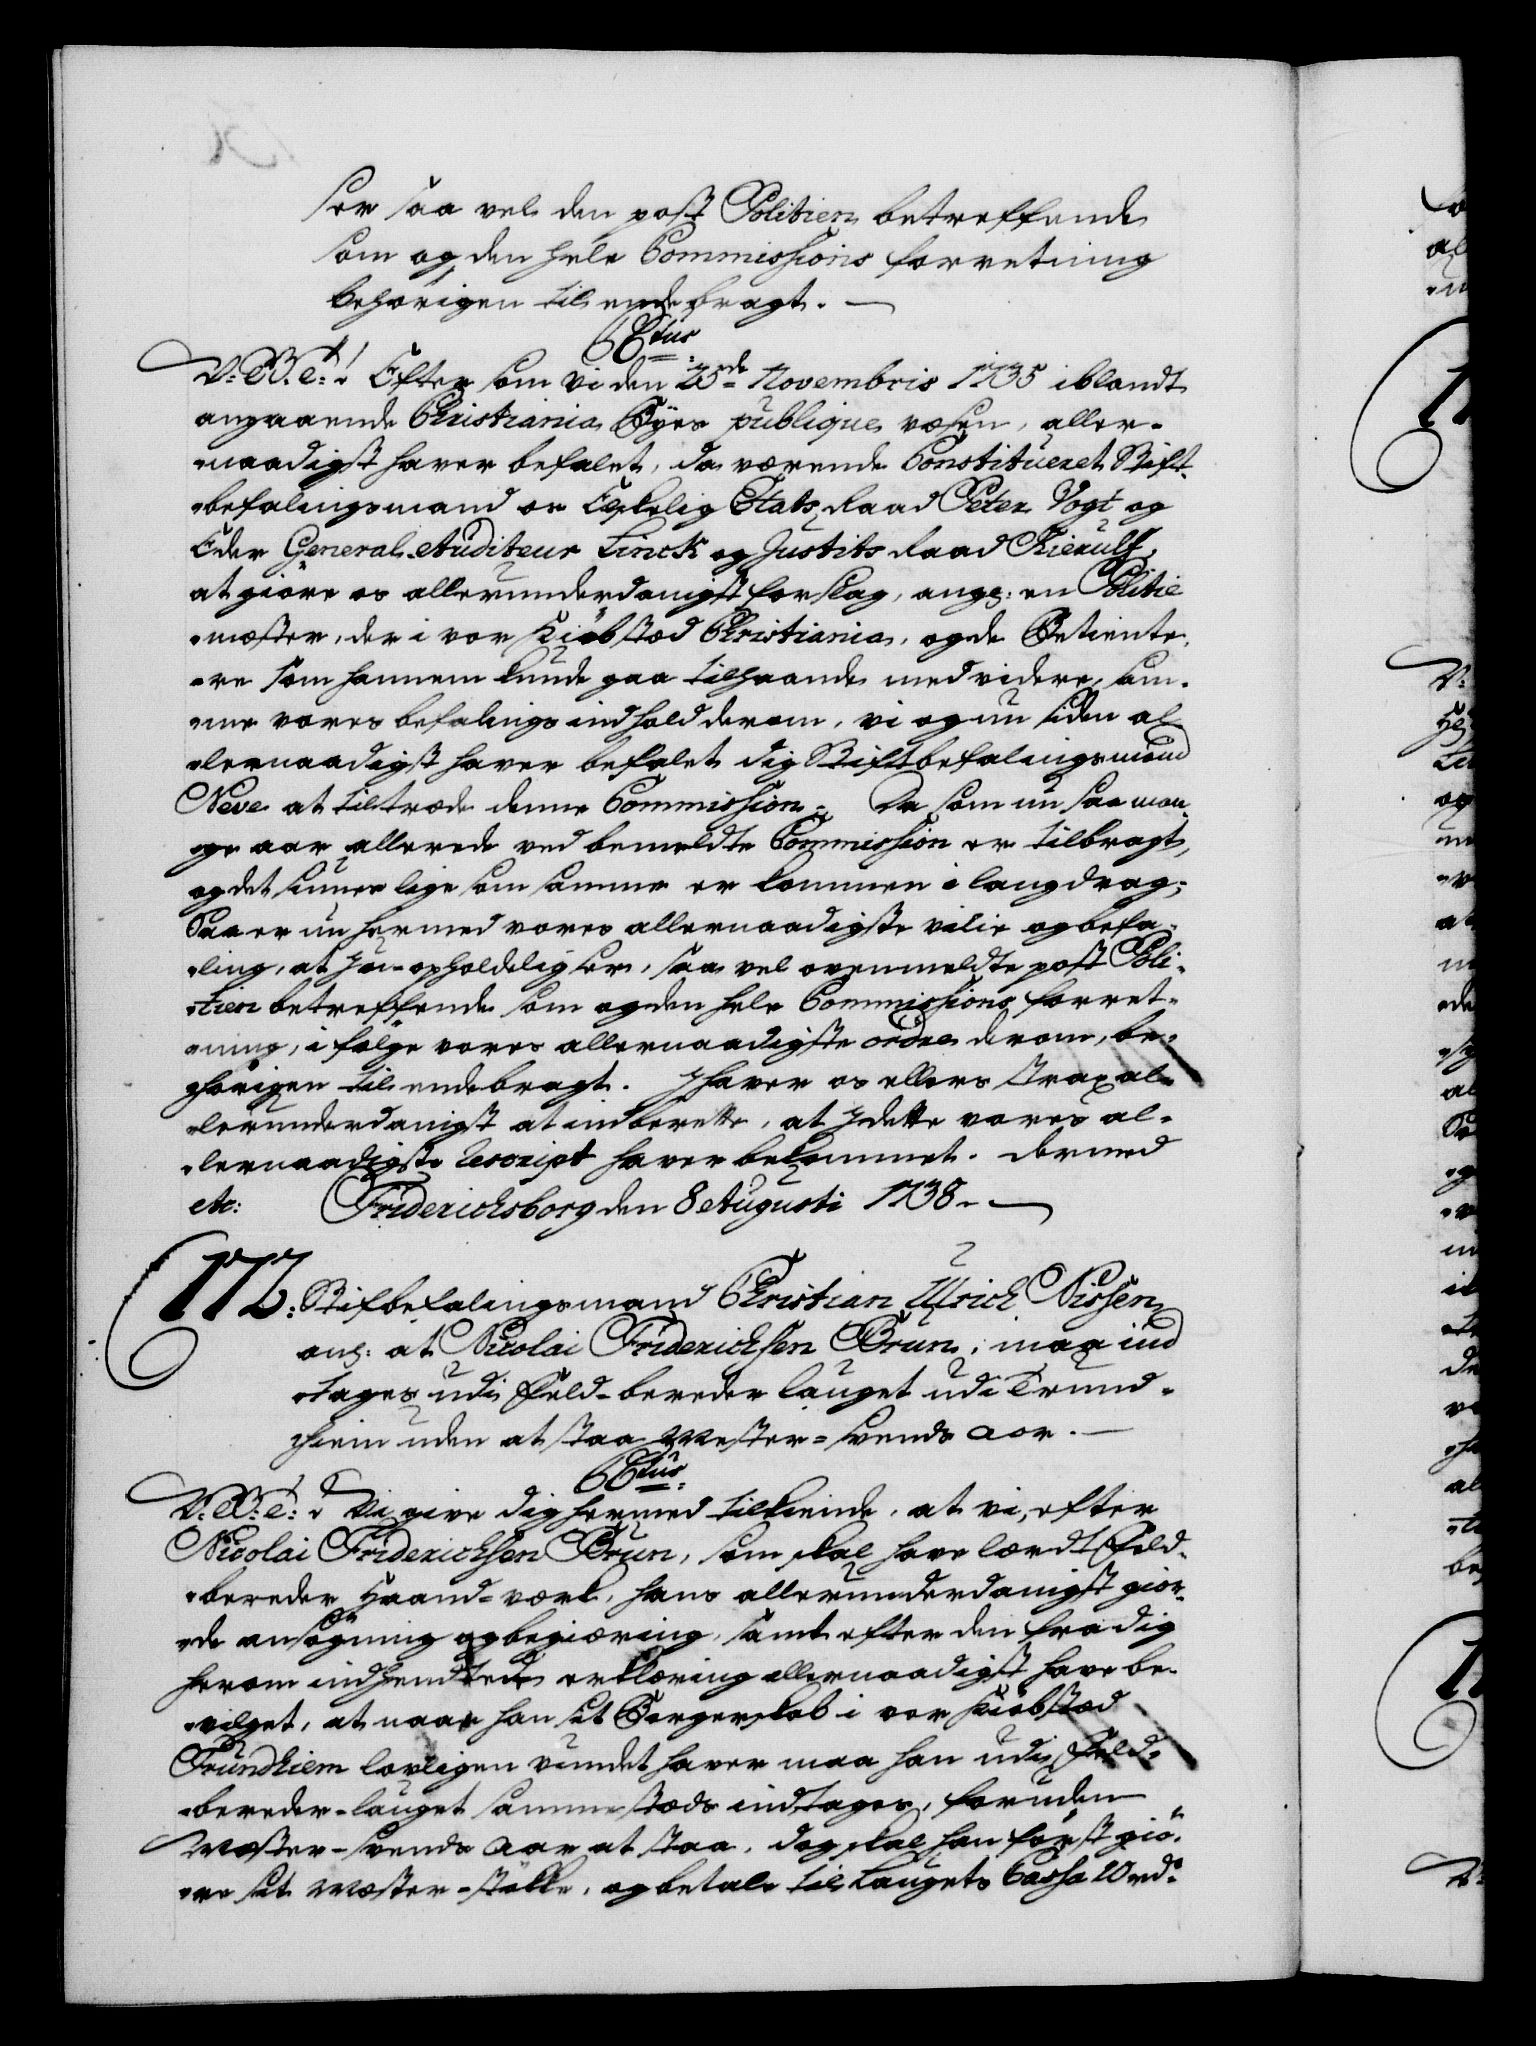 ser saa vel den post Politien betreffende
som og den hele Commissions forretning
behørigen til ende bragt. —
C 6tus
V: G: T: Efter som vi den 25de Novembris 1735 iblandt
angaaende Christiania Byes publique væsen, aller-
naadigst haver befalet, da værende Constitueret Stift-
befalingsmand os Elskelig Etats Raad Peter Vogt og
Eder General-Auditeur Linck og Justits Raad Kierulf,
at giøre os allerunderdanigst forslag, ang: en Politie
mæster, der i vor Kiøbstæd Christiania, og de Betiente,
som hannem kunde gaa tilhaande med videre, sam-
me vores befalings indhold derom, vi og nu siden al-
lernaadigst haver befalet dig Stiftbefalingsmand
Neve at tiltræde denne Commission; Da som nu saa man-
ge aar allerede ved bemeldte Commission er tilbragt,
og det siunes lige som samme er kommen i langdrag;
Saa er nu hermed vores allernaadigste vilie og befa-
ling, at I u-opholdelig ser, saa vel ovenmeldte post Poli-
tien betreffende som og den hele Commissions forret-
ning, i følge vores allernaadigste ordre derom, be-
hørigen til ende bragt. I haver os ellers strax al-
lerunderdanigst at indberette, at I dette vores al-
lernaadigste Rescript haver bekommet. Dermed
etc: Friderichsborg den 8 Augusti 1738. —
172. Stifbefalingsmand Christian Ulrich Nissen
ang: at Nicolai Friderichsen Brun, maa ind
tages udi Feld-bereder lauget udi Trund-
hiem uden at staa Mester-svends aar. —
C 6tus
V: G: T: Vi give dig hermed tilkiende, at vi, efter
Nicolai Friderichsen Brun, som skal have lærdt Feld-
bereder Haand-værk, hans allerunderdanigst gior-
de ansøgning og begiæring, samt efter den fra dig
herom indhendtede erklæring allernaadigst have be-
vilget, at naar han sit Borgerskab i vor Kiøbstæd
Trundhiem lovligen vundet haver maa han udi Feld-
bereder-lauget sammestæds indtages, foruden
Mæster-svends Aar at staa, dog skal han først giø-
re sit Mæster-støkke, og betale til Laugets Cassa 10 rd: